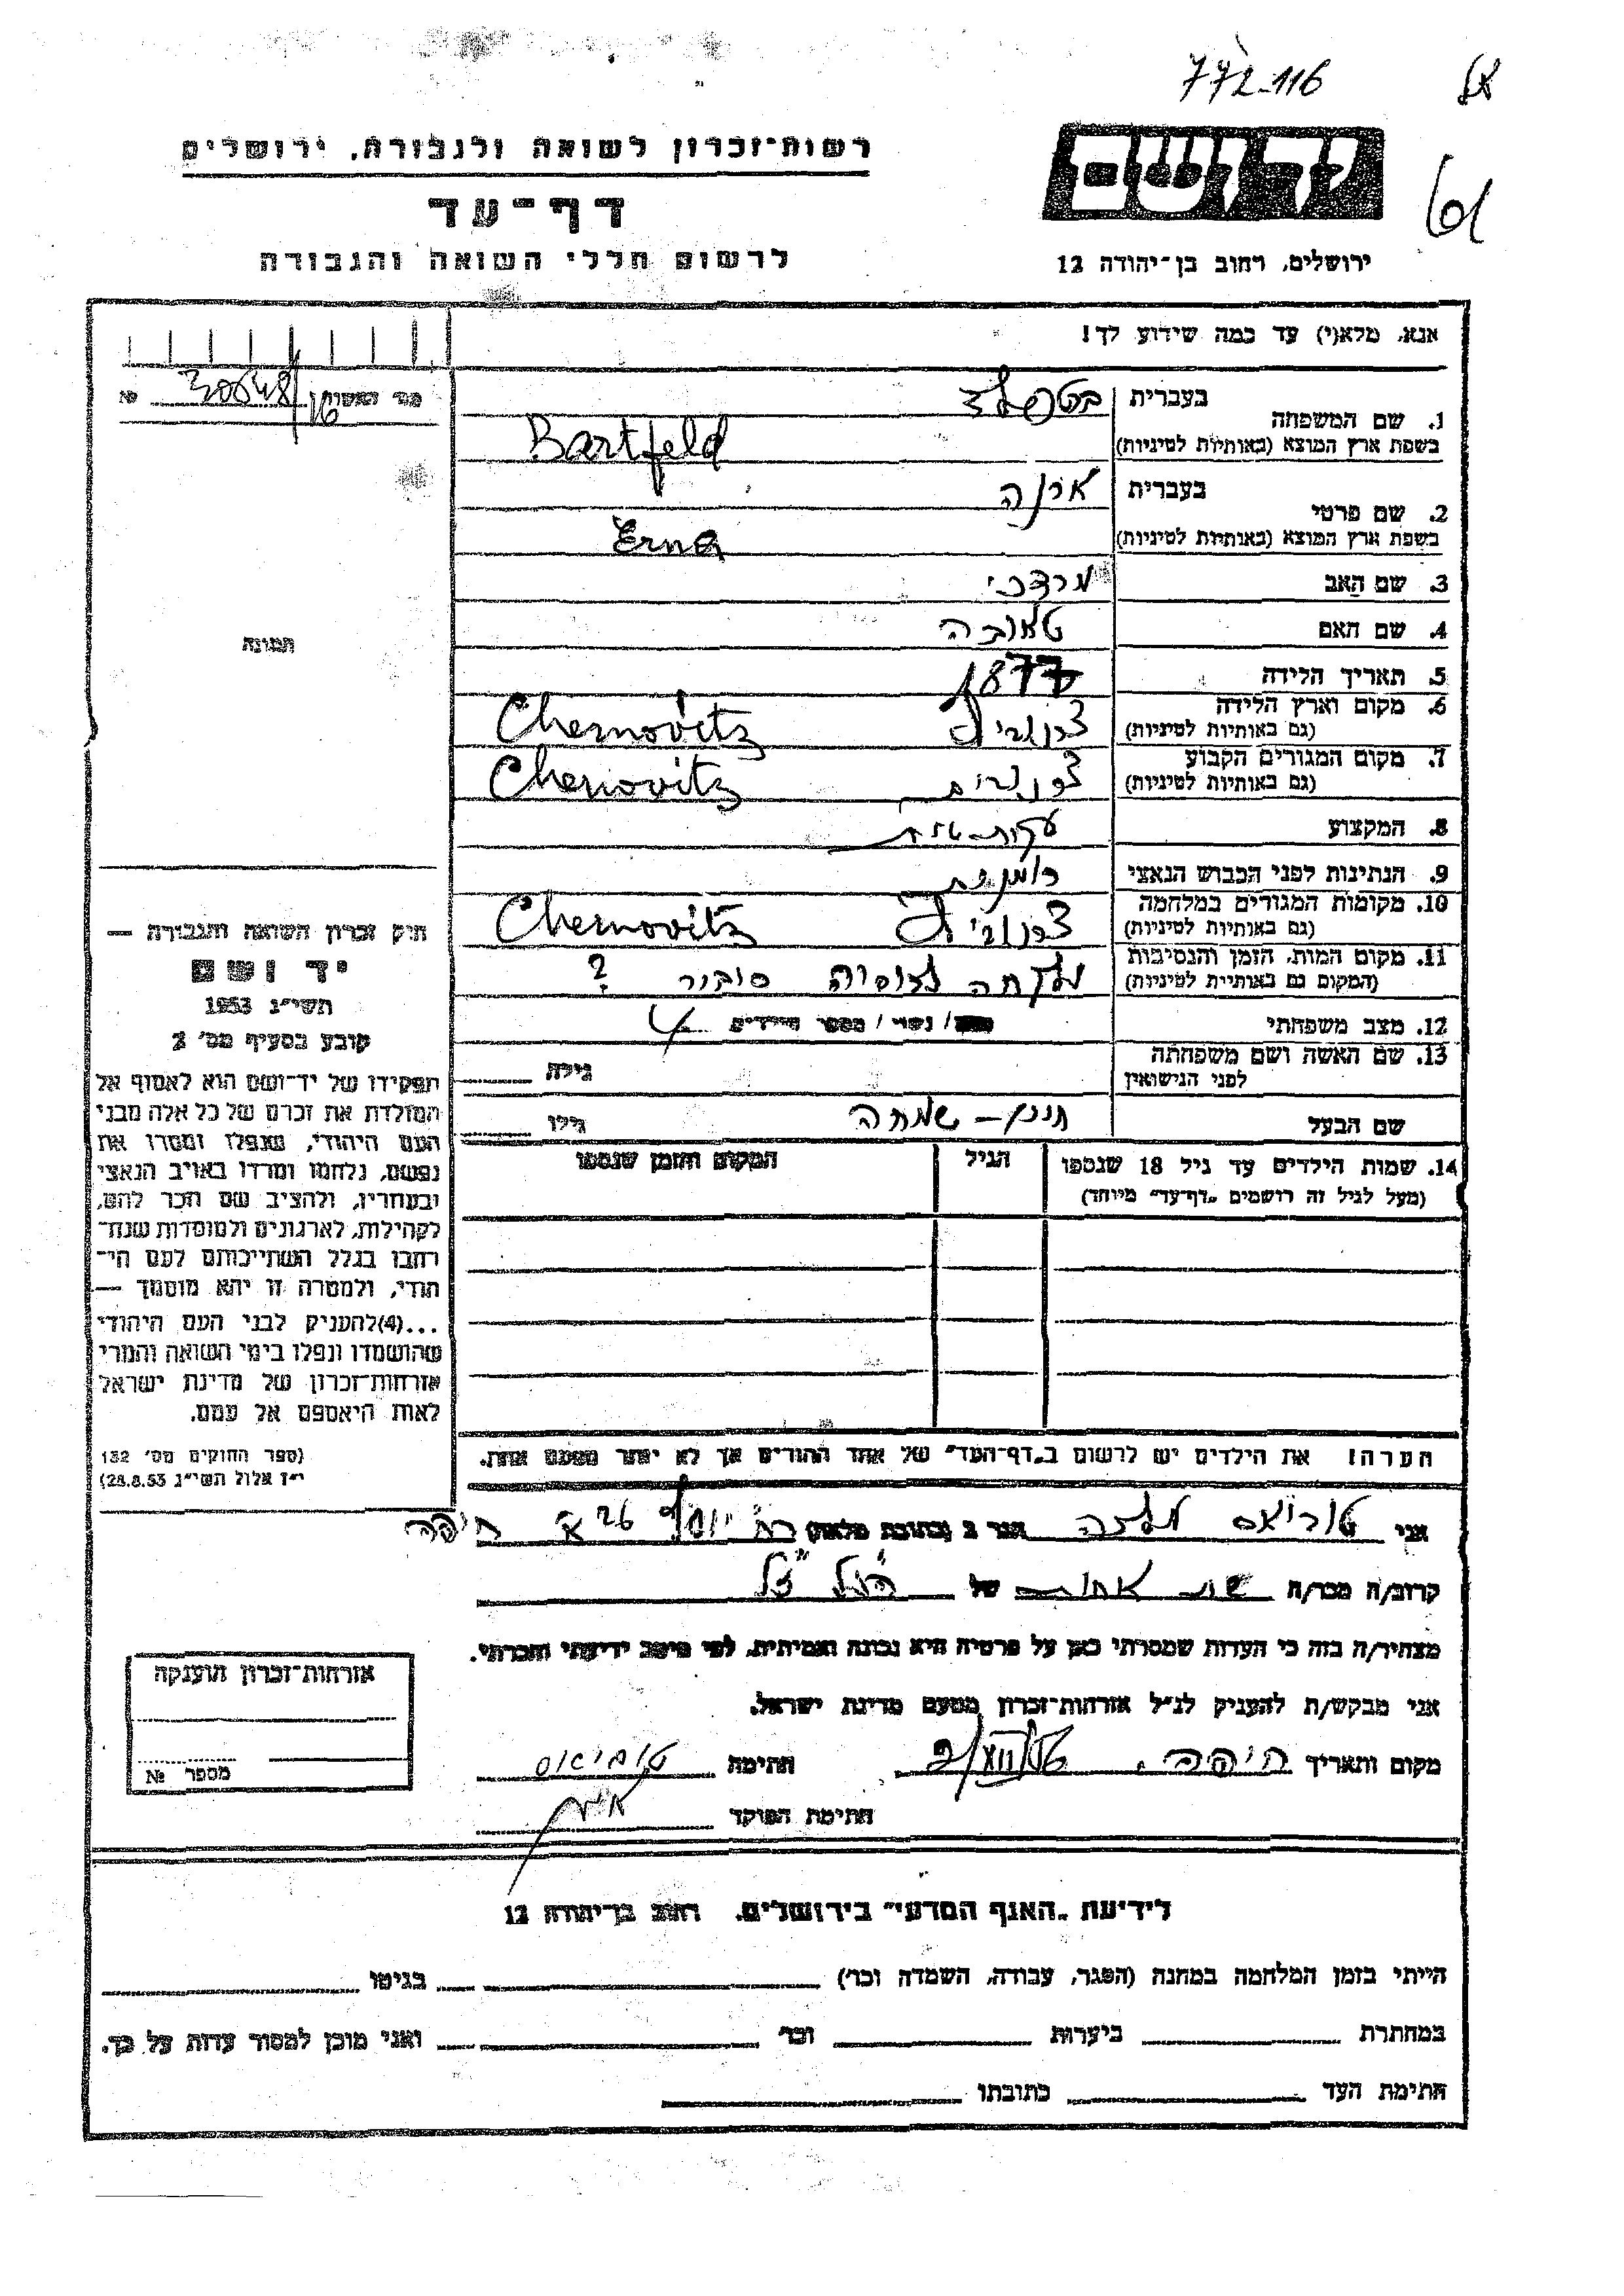 772-116
רשות־זכרון לשואה ולגבורה, ירושלים
דף־עד
לרשום חללי השואה והגבורה
ירושלים, רחוב בן־יהודה 12
אנא, מלא(י) עד כמה שידוע לך!
№ 30648/16
1. שם המשפחה
בעברית
בשפת ארץ המוצא (באותיות לטיניות) Bartfeld
2. שם פרטי
בעברית ארנה
בשפת ארץ המוצא (באותיות לטיניות) Erna
3. שם האב מרדכי
4. שם האם טאובה
5. תאריך הלידה 1877
6. מקום וארץ הלידה
(גם באותיות לטיניות) Chernovitz
7. מקום המגורים הקבוע
(גם באותיות לטיניות) Chernovitz
8. המקצוע עקרת-בית
9. הנתינות לפני הכבוש הנאצי רומנית
10. מקומות המגורים במלחמה
(גם באותיות לטיניות) Chernovitz
11. מקום המות, הזמן והנסיבות
(המקום גם באותיית לטיניות) נלקחה לרוסיה סיביר ?
12. מצב משפחתי נשוי / מספר הילדים 4
13. שם האשה ושם משפחתה
לפני הנישואין
גילה
שם הבעל שמחה גילו
14. שמות הילדים עד גיל 18 שנספו הגיל המקום והזמן שנספו
(מעל לגיל זה רושמים „דף־עד״ מיוחד)
הערה! את הילדים יש לרשום ב„דף־העד״ של אחד ההורים אך לא יותר מפעם אחת.
תמונה
חוק זכרון השואה והגבורה —
יד ושם
תשי״ג 1953
קובע בסעיף מס׳ 2
תפקידו של יד־ושם הוא לאסוף אל
המולדת את זכרם של כל אלה מבני
העם היהודי, שנפלו ומסרו את
נפשם, נלחמו ומרדו באויב הנאצי
ובעוזריו, ולהציב שם וזכר להם,
לקהילות, לארגונים ולמוסדות שנח־
רבו בגלל השתייכותם לעם הי־
הודי, ולמטרה זו יהא מוסמך —
...(4)להעניק לבני העם היהודי
שהושמדו ונפלו בימי השואה והמרי
אזרחות־זכרון של מדינת ישראל
לאות היאספם אל עמם.
(ספר החוקים מס׳ 132
י״ז אלול תשי״ג 28.8.53)
אני הגר ב (כתובת מלאה) רח׳ יוסף 26 א חיפה
קרוב/ה מכר/ה של הנ״ל ז״ל
מצהיר/ה בזה כי העדות שמסרתי כאן על פרטיה היא נכונה ואמיתית, לפי מיטב ידיעתי והכרתי.
אני מבקש/ת להעניק לנ״ל אזרחות־זכרון מטעם מדינת ישראל.
מקום ותאריך חיפה, חתימה
חתימת הפוקד
אזרחות־זכרון הוענקה
מספר №
לידיעת „האגף המדעי״ בירושלים. רחוב בן־יהודה 12
הייתי בזמן המלחמה במחנה (הסגר, עבודה, השמדה וכו׳) בגיטו
במחתרת ביערות וכו׳ ואני מוכן למסור עדות על כך.
חתימת העד כתובתו